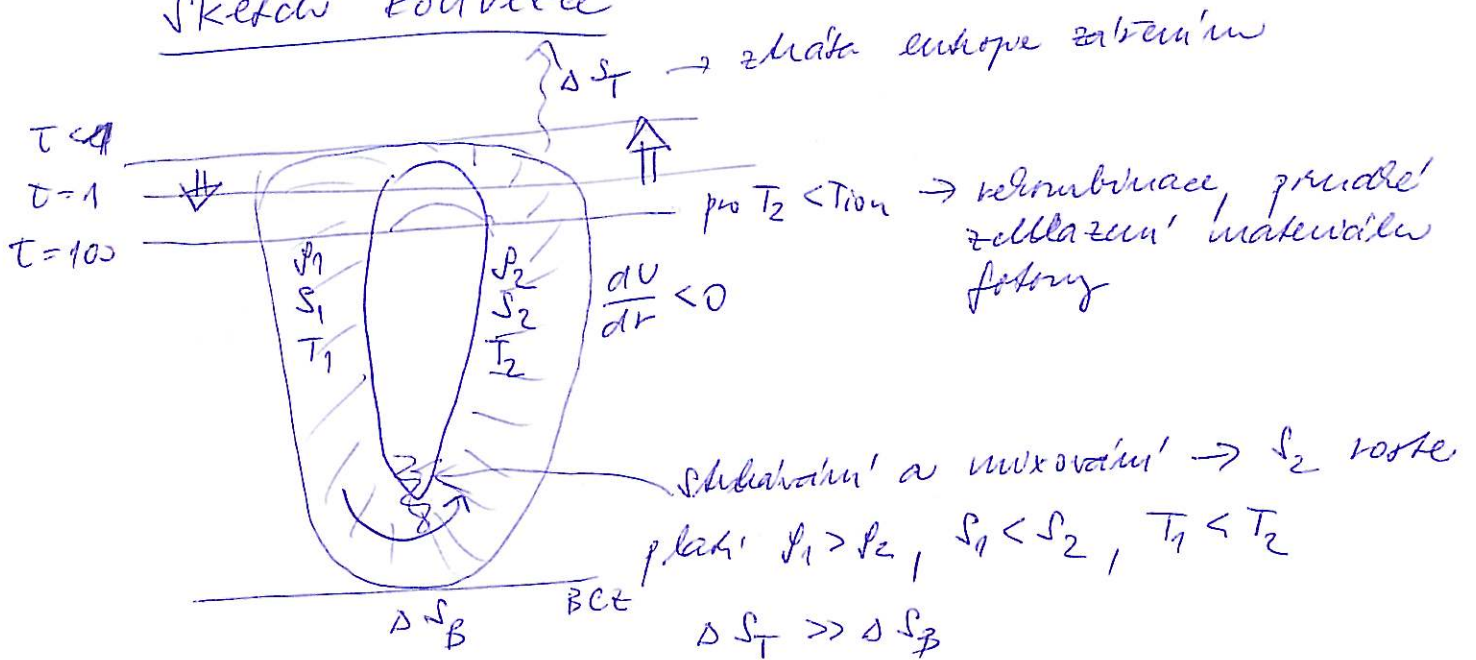 Sketch konvekce
ΔS_T → ztráta entropie zářením
τ<1
τ=1
τ=100
pro T₂ < Tion → rekombinace, prudké
zchlazení materiálu
fotony
ρ₁
S₁
T₁
ρ₂
S₂
T₂
dU/dr < 0
a mixování → S₂ roste
platí ρ₁ > ρ₂, S₁ < S₂, T₁ < T₂
BCZ
ΔS_B
ΔS_T >> ΔS_B